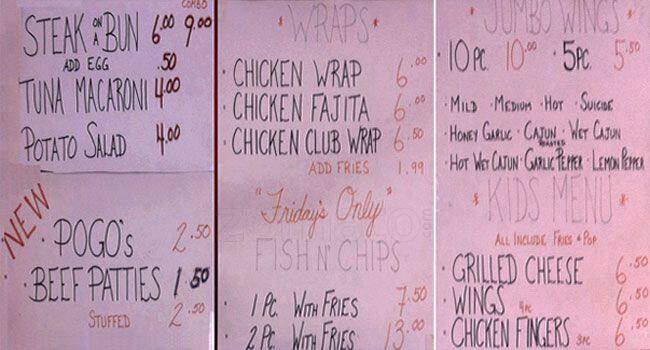 COMBO
STEAK ON A BUN 6.00 9.00
ADD EGG .50
TUNA MACARONI 4.00
POTATO SALAD 4.00
NEW
· POGO'S 2.50
· BEEF PATTIES 1.50
STUFFED 2.50
* WRAPS *
· CHICKEN WRAP 6.00
· CHICKEN FAJITA 6.00
· CHICKEN CLUB WRAP 6.50
ADD FRIES 1.99
"Friday's Only"
FISH N' CHIPS
· 1 PC. WITH FRIES 7.50
· 2 PC. WITH FRIES 13.00
* JUMBO WINGS *
10 PC. 10.00 5 PC. 5.50
· MILD · MEDIUM · HOT · SUICIDE
· HONEY GARLIC · CAJUN · WET CAJUN
ROASTED
· HOT WET CAJUN · GARLIC PEPPER · LEMON PEPPER
* KIDS MENU *
ALL INCLUDE FRIES & POP
· GRILLED CHEESE 6.50
· WINGS 4PC 6.50
· CHICKEN FINGERS 3PC 6.50